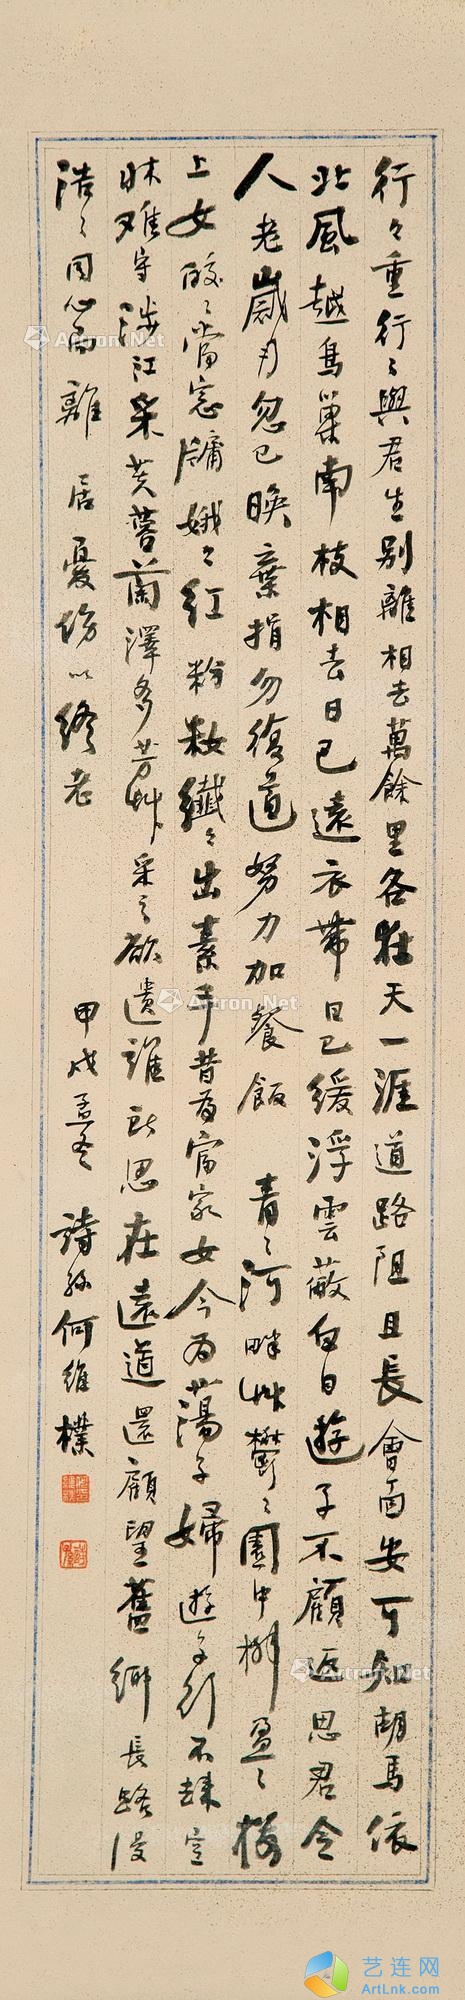 行々重行々與君生別離相去萬餘里各在天一涯道路阻且長會面安可知胡馬依
北風越鳥巢南枝相去日已遠衣帶日已緩浮雲蔽白日遊子不顧返思君令
人老歲月忽已晚棄捐勿復道努力加餐飯 青々河畔艸鬱々園中柳盈々樓
上女皎々當窓牖娥々紅粉妝纖々出素手昔為倡家女今為蕩子婦遊子行不歸空
牀難守涉江采芙蓉蘭澤多芳艸采之欲遺誰所思在遠道還顧望舊鄉長路漫
浩々同心而離居憂傷以終老
甲戌孟冬 詩孫何維樸
Artron.Net
Artron.Net
Artron.Net
Artron.Net
艺连网
ArtLnk.com